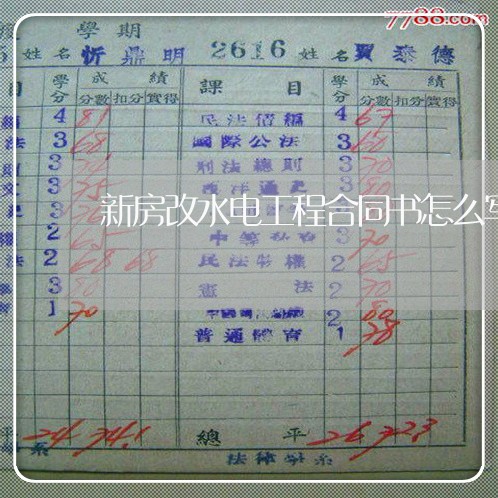 7788.com
學期
姓名 忻鼎明 2616 姓名 賈泰德
目 學分 成績 課目 學分 成績
分數 扣分 實得 分數 扣分 實得
4 81 民法債編 4 67
法 3 68 國際公法 3 60
3 刑法總則 3 70
3 75 西洋通史 3 80
新房改水电工程合同书怎么写
2 65 3 70
法 2 68 68 民法物權 2 65
3 80 憲法 2 70
1 70 2 80
普通體育 1 78
平 24 74.1 總平 26 72.3
系 法律學系